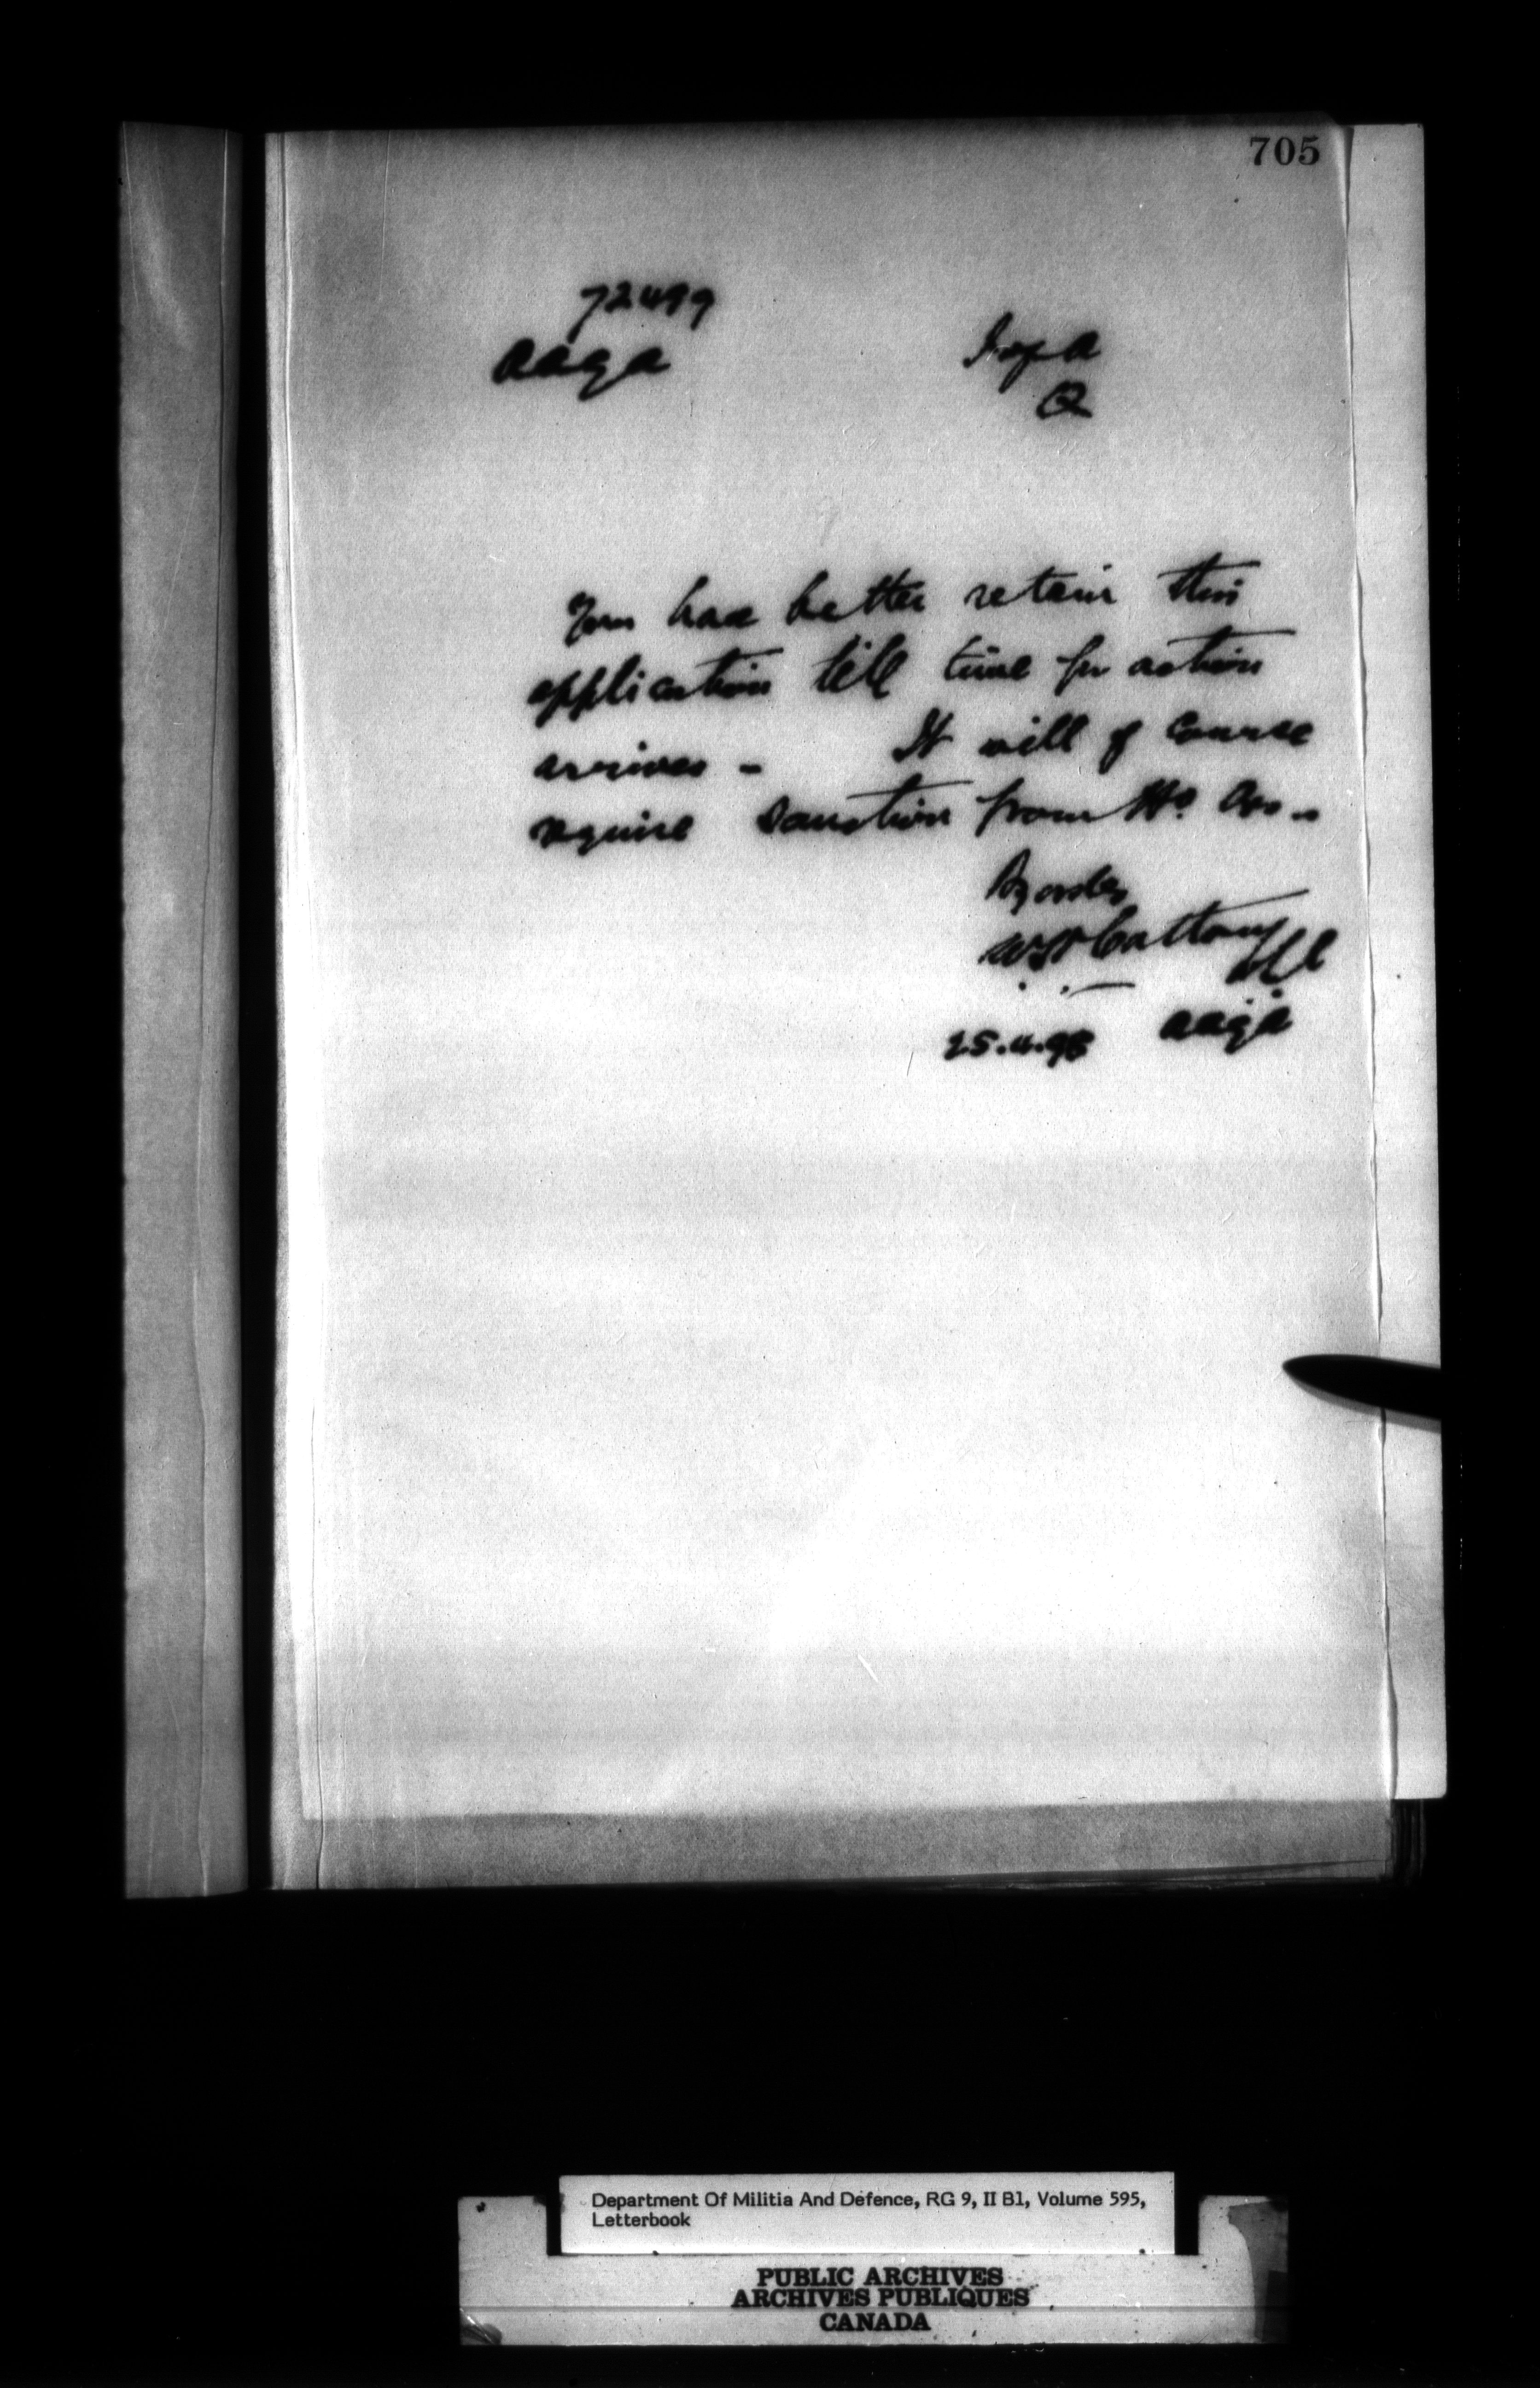 705
72499
AAGA
Insp A
Q
You had better retain this
application till time for action
arrives - It will of course
require sanction from Hd Qrs.
By order
AAGA
25.4.98
Department Of Militia And Defence, RG 9, II B1, Volume 595,
Letterbook
PUBLIC ARCHIVES
ARCHIVES PUBLIQUES
CANADA